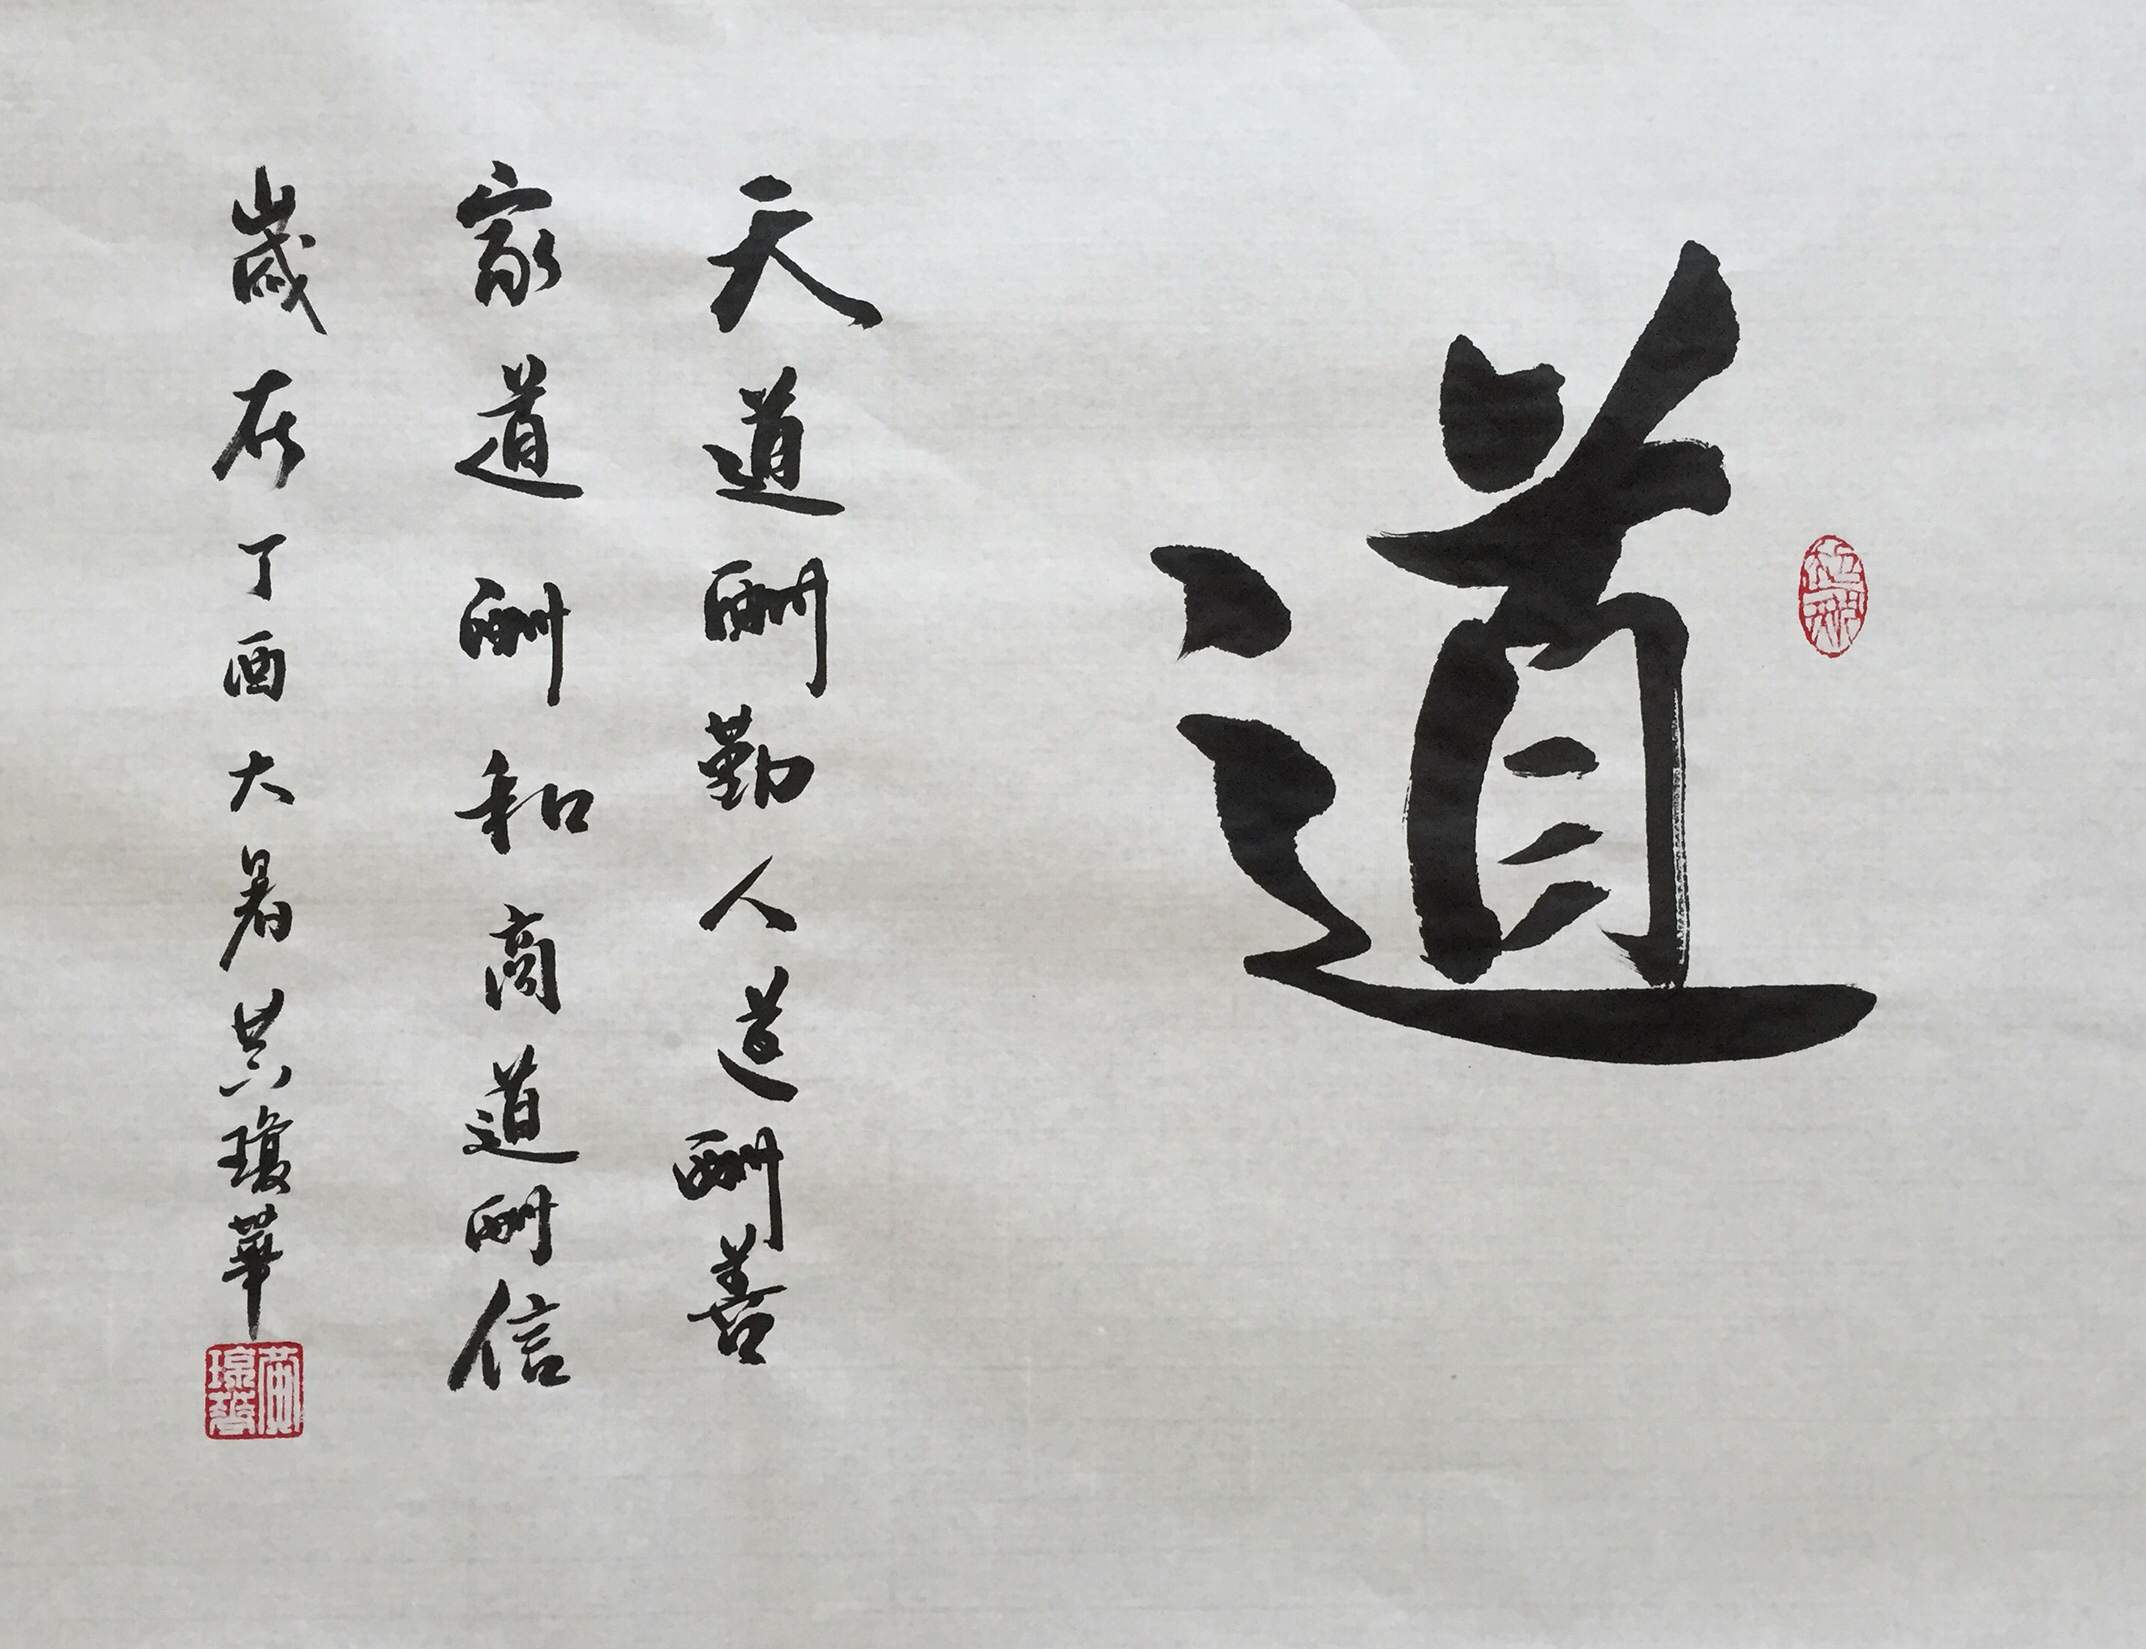 道
天道酬勤人道酬善
家道酬和商道酬信
歲在丁酉大暑黄瓊華